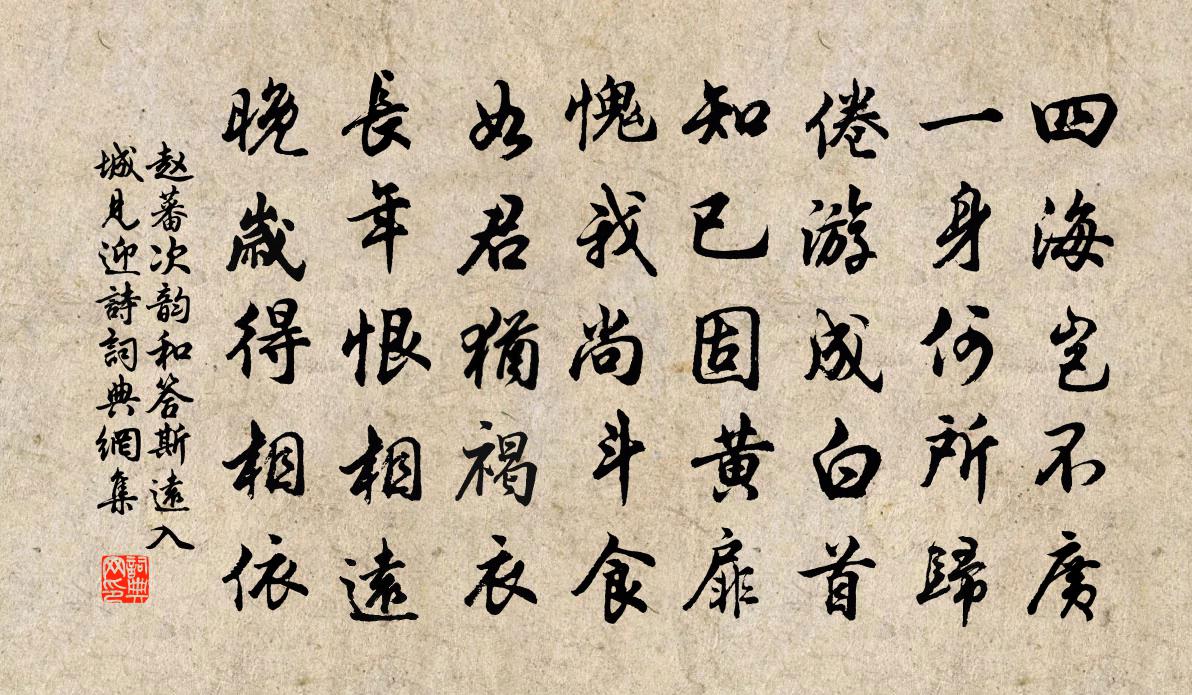 四海岂不廣
一身何所歸
倦游成白首
知已固黄扉
愧我尚斗食
如君猶褐衣
長年恨相遠
晚歲得相依
赵蕃次韵和答斯遠入
城見迎詩詞典網集
詞典
网印